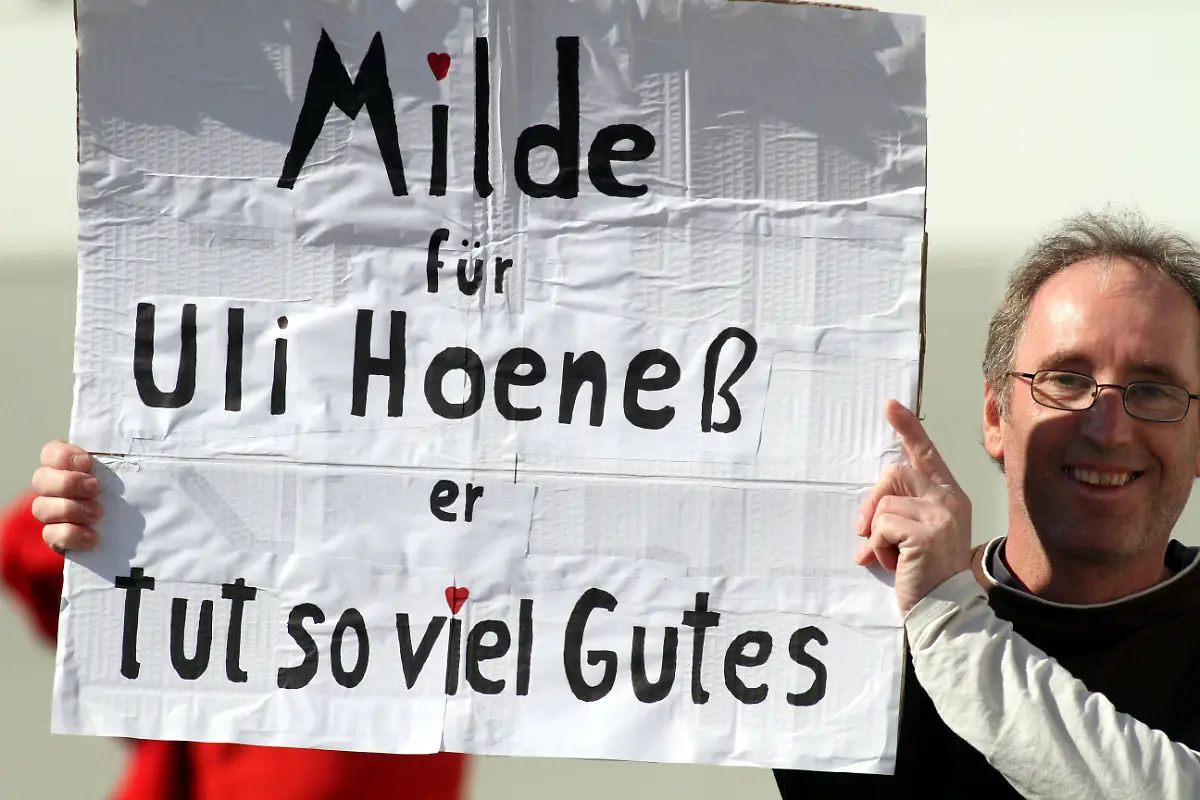 Milde
für
Uli Hoeneß
er
Tut so viel Gutes